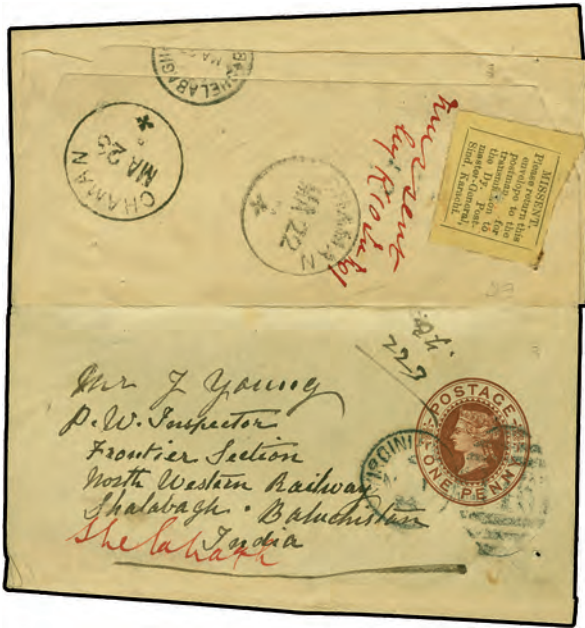 SHELABAGH
CHAMAN
MA 23
CHAMAN
MA 22
Missent
by
MISSENT.
Please return this
envelope to the
postman for
transmission to
the Dy. Post-
master-General,
Sind, Karachi.
POSTAGE
ONE PENNY
Mr J Young
P. W. Inspector
Frontier Section
North Western Railway
Shalabagh. Baluchistan
India
Shelabagh